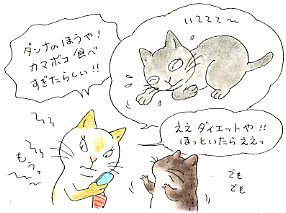 ダンナのほうや!
カマボコ食べ
すぎたらしい!!
いててて〜
ええダイエットや!!
ほっといたらええっ
もうっ
でも
でも